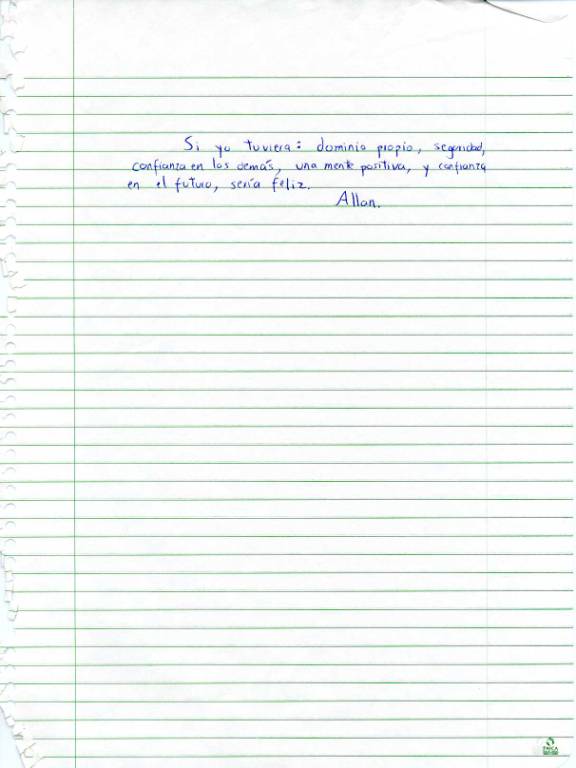 Si yo tuviera: dominio propio, seguridad,
confianza en los demás, una mente positiva, y confianza
en el futuro, sería feliz.
Allan.